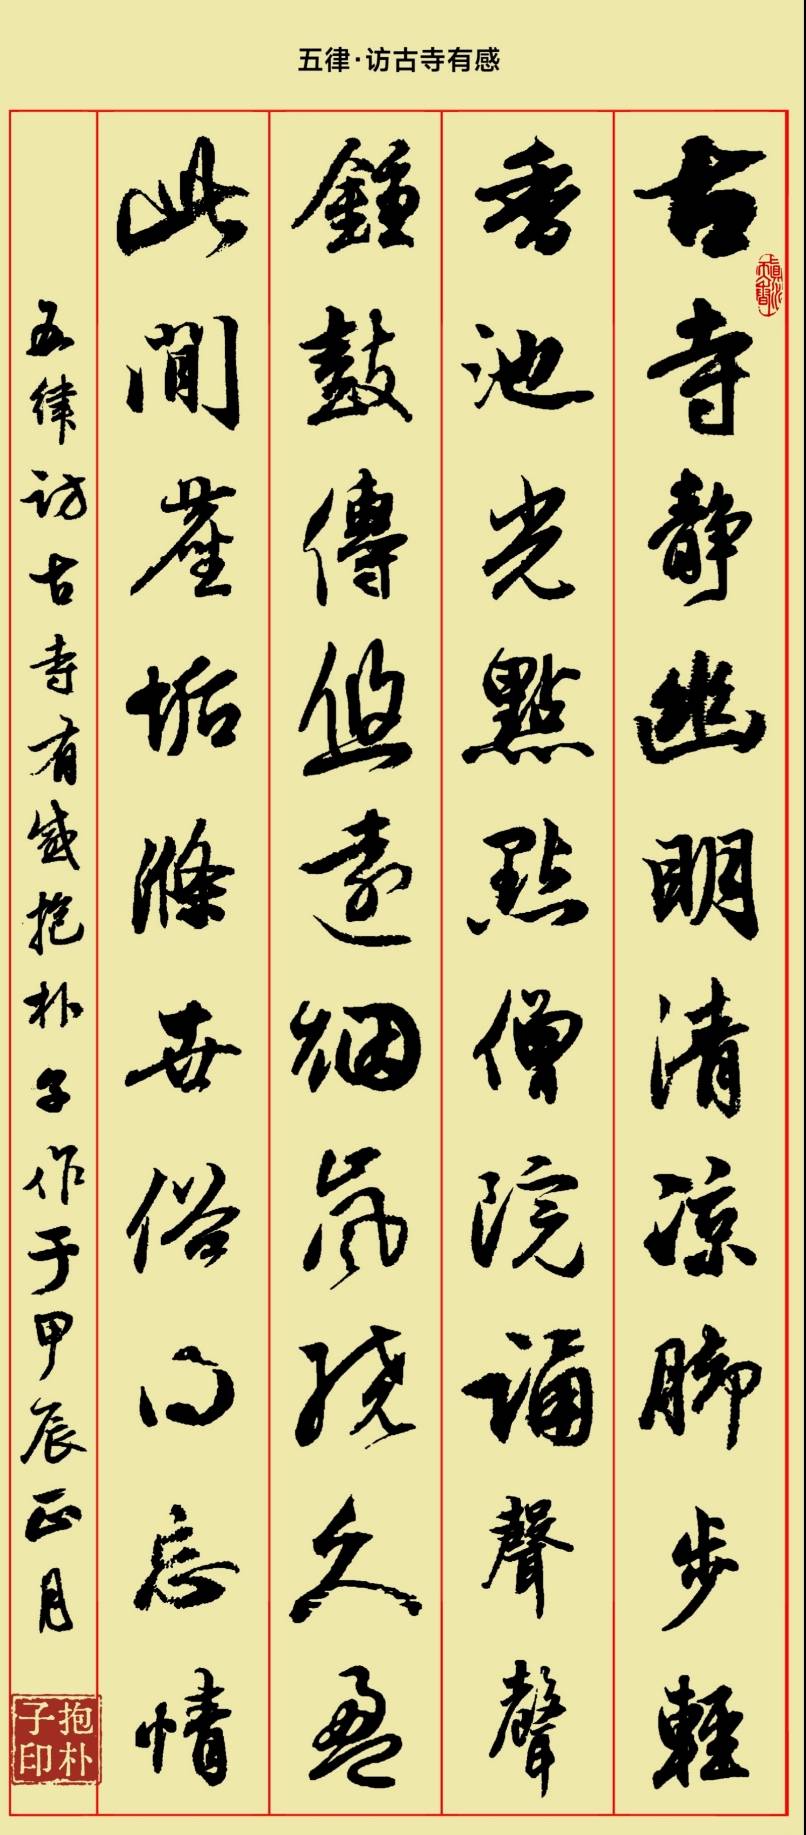 五律·访古寺有感
古寺静幽明清凉脚步輕
香池光點點僧院诵聲聲
鐘鼓傳悠遠烟岚繞久盈
此間塵垢滌世俗同忘情
五律访古寺有感抱朴子作于甲辰正月
抱朴
子印